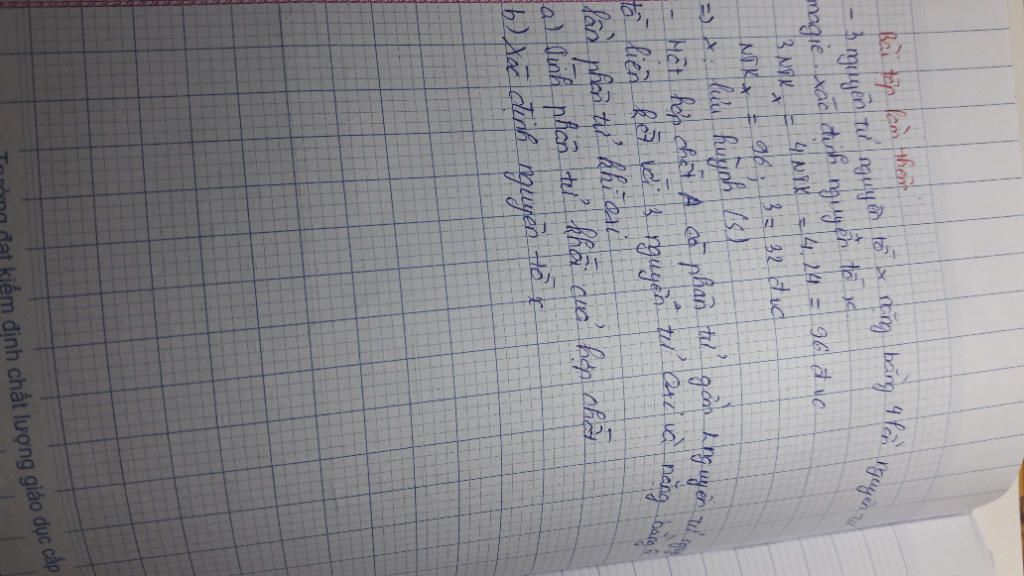 Bài tập làm thêm
- 3 nguyên tử nguyên tố x nặng bằng 4 lần nguyên tử
magiê. xác định nguyên tố x.
3NTK x = 4NTK = 4.24 = 96 đvc
NTK x = 96 : 3 = 32 đvc
=) x: lưu huỳnh (S)
- Một hợp chất A có phân tử gồm 1 nguyên tử
tố liên kết với 3 nguyên tử oxi và nặng bằng
lần phân tử khí oxi
a) tính phân tử khối của hợp chất
b) Xác định nguyên tố x
Trường đạt kiểm định chất lượng giáo dục cấp